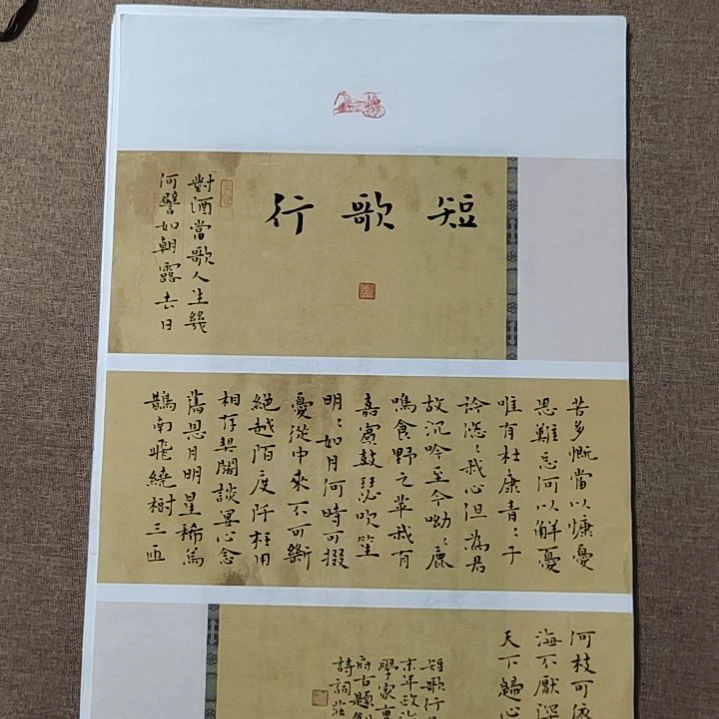 短歌行
對酒當歌人生幾
何譬如朝露去日
苦多慨當以慷憂
思難忘何以解憂
唯有杜康青〻子
衿悠〻我心但為君
故沉吟至今呦〻鹿
鳴食野之苹我有
嘉賓鼓瑟吹笙
明〻如月何時可掇
憂從中來不可斷
絕越陌度阡枉用
相存契闊談宴心念
舊恩月明星稀烏
鵲南飛繞樹三匝
何枝可依
海不厭深
天下歸心
短歌行
末年政治
學家曹
府古題創
詩詞莊